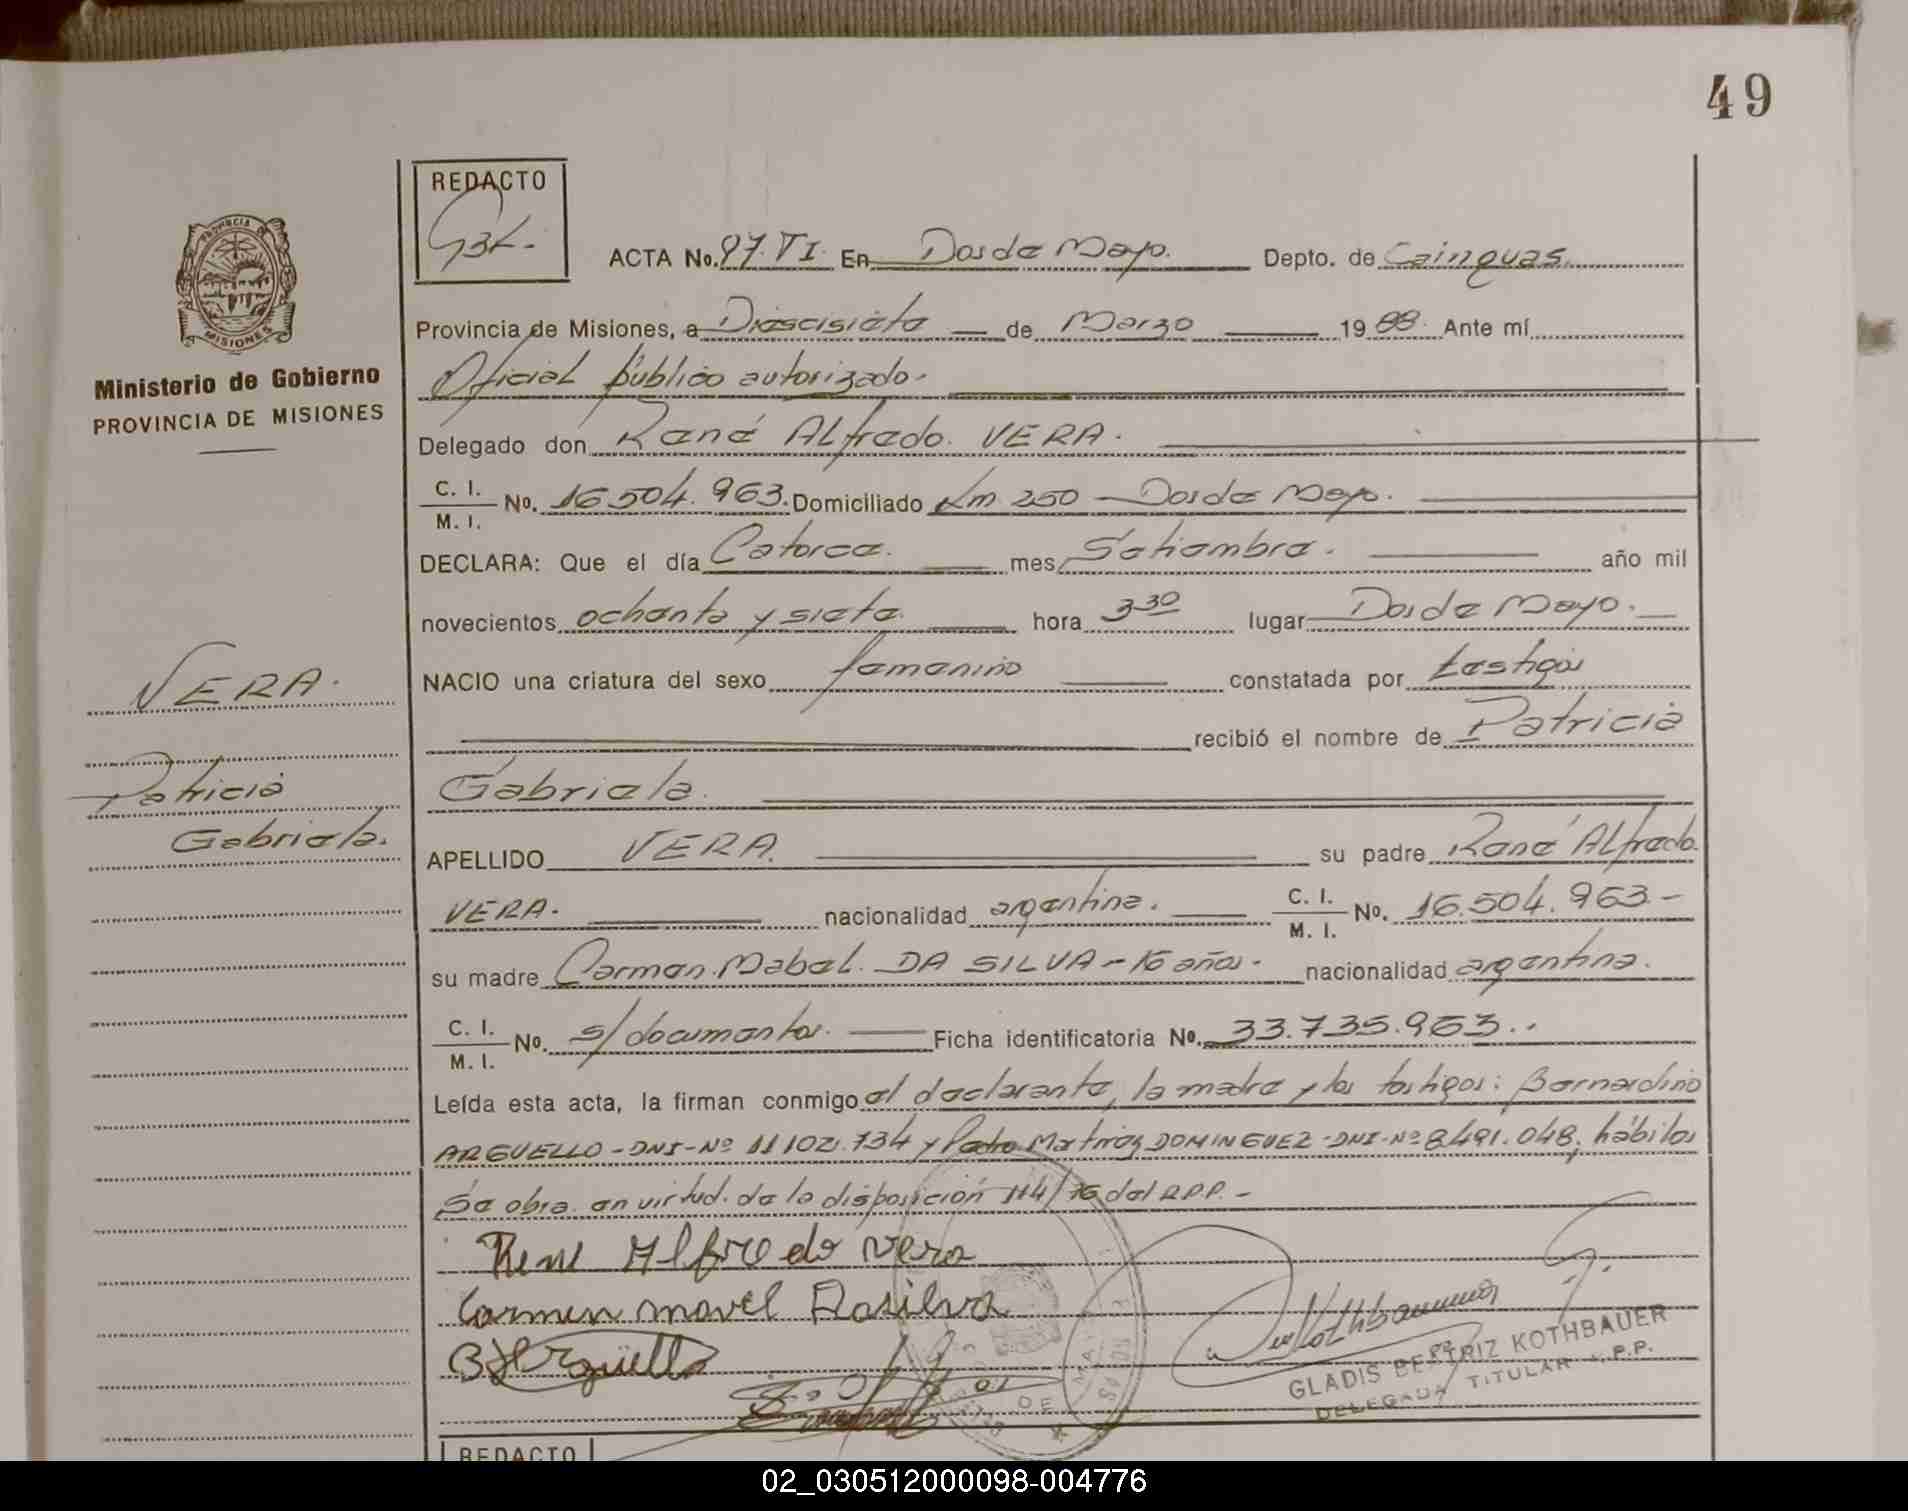 49
REDACTO
PROVINCIA DE
MISIONES
Ministerio de Gobierno
PROVINCIA DE MISIONES
ACTA No. 97. VI. En Dos de Mayo. Depto. de Cainguas.
Provincia de Misiones, a Diescisiete de Marzo 1988. Ante mí
Oficial público autorizado.
Delegado don René Alfredo. VERA.
C. I. / M. I. No. 16.504.963. Domiciliado Km 250 - Dos de Mayo.
DECLARA: Que el día Catorce. mes Setiembre. año mil
novecientos ochenta y siete. hora 3 30 lugar Dos de Mayo.
NACIO una criatura del sexo femenino constatada por testigos
recibió el nombre de Patricia
Gabriela.
APELLIDO VERA. su padre René Alfredo.
VERA. nacionalidad argentina. C. I. / M. I. No. 16.504.963.-
su madre Carmen Mabel. DA SILVA - 16 años. nacionalidad argentina.
C. I. / M. I. No. s/documentos. Ficha identificatoria No. 33.735.963..
Leída esta acta, la firman conmigo el declarante, la madre y los testigos: Bernardino
ARGUELLO - DNI - Nº 11102.734 y Pedro Martires DOMINGUEZ - DNI - Nº 8.491.048, hábiles
Se obra en virtud. de la disposición 114/76 del R.P.P. -
Rene Alfredo Vera
Carmen mavel Dasilva
B Arguello
Kothbauer
GLADIS BEATRIZ KOTHBAUER
DELEGADA TITULAR R.P.P.
VERA.
Patricia
Gabriela.
REDACTO
02_030512000098-004776